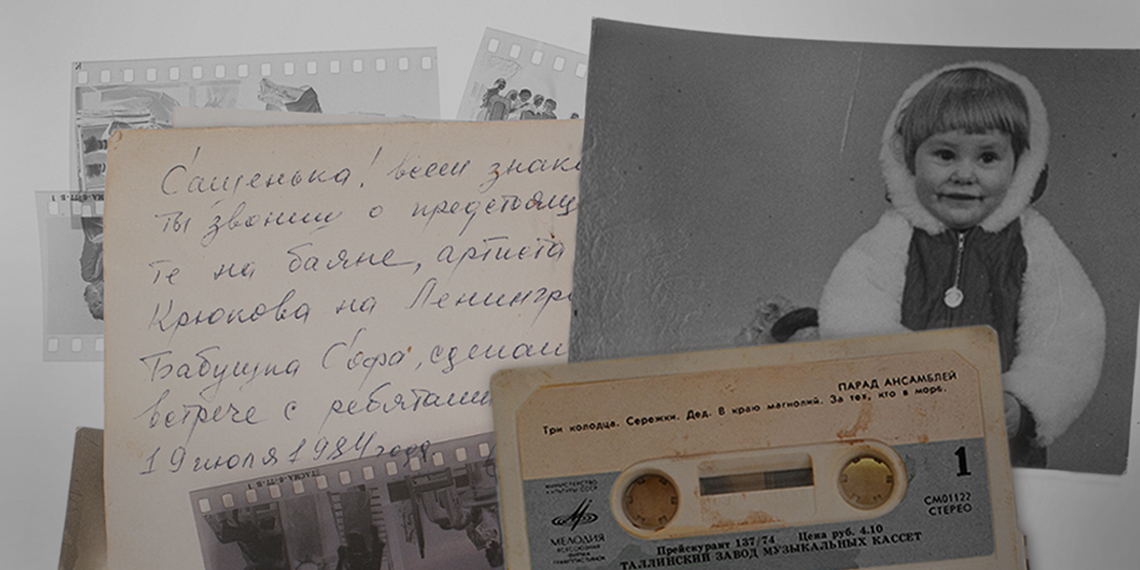 Сашенька! всем знако
ты звониш о предстоящ
те на баяне, артиста
Крюкова на Ленингр
Бабушка Софа, сделан
встрече с ребятами
19 июля 1984 года
ТАСМА-6-ТГ-В-1
ПАРАД АНСАМБЛЕЙ
Три колодца. Сережки. Дед. В краю магнолий. За тех, кто в море.
1
МИНИСТЕРСТВО
КУЛЬТУРЫ СССР
СМ01122
СТЕРЕО
МЕЛОДИЯ
ВСЕСОЮЗНАЯ
ФИРМА
ГРАМПЛАСТИНОК
Прейскурант 137/74 Цена руб. 4.10
ТАЛЛИНСКИЙ ЗАВОД МУЗЫКАЛЬНЫХ КАССЕТ